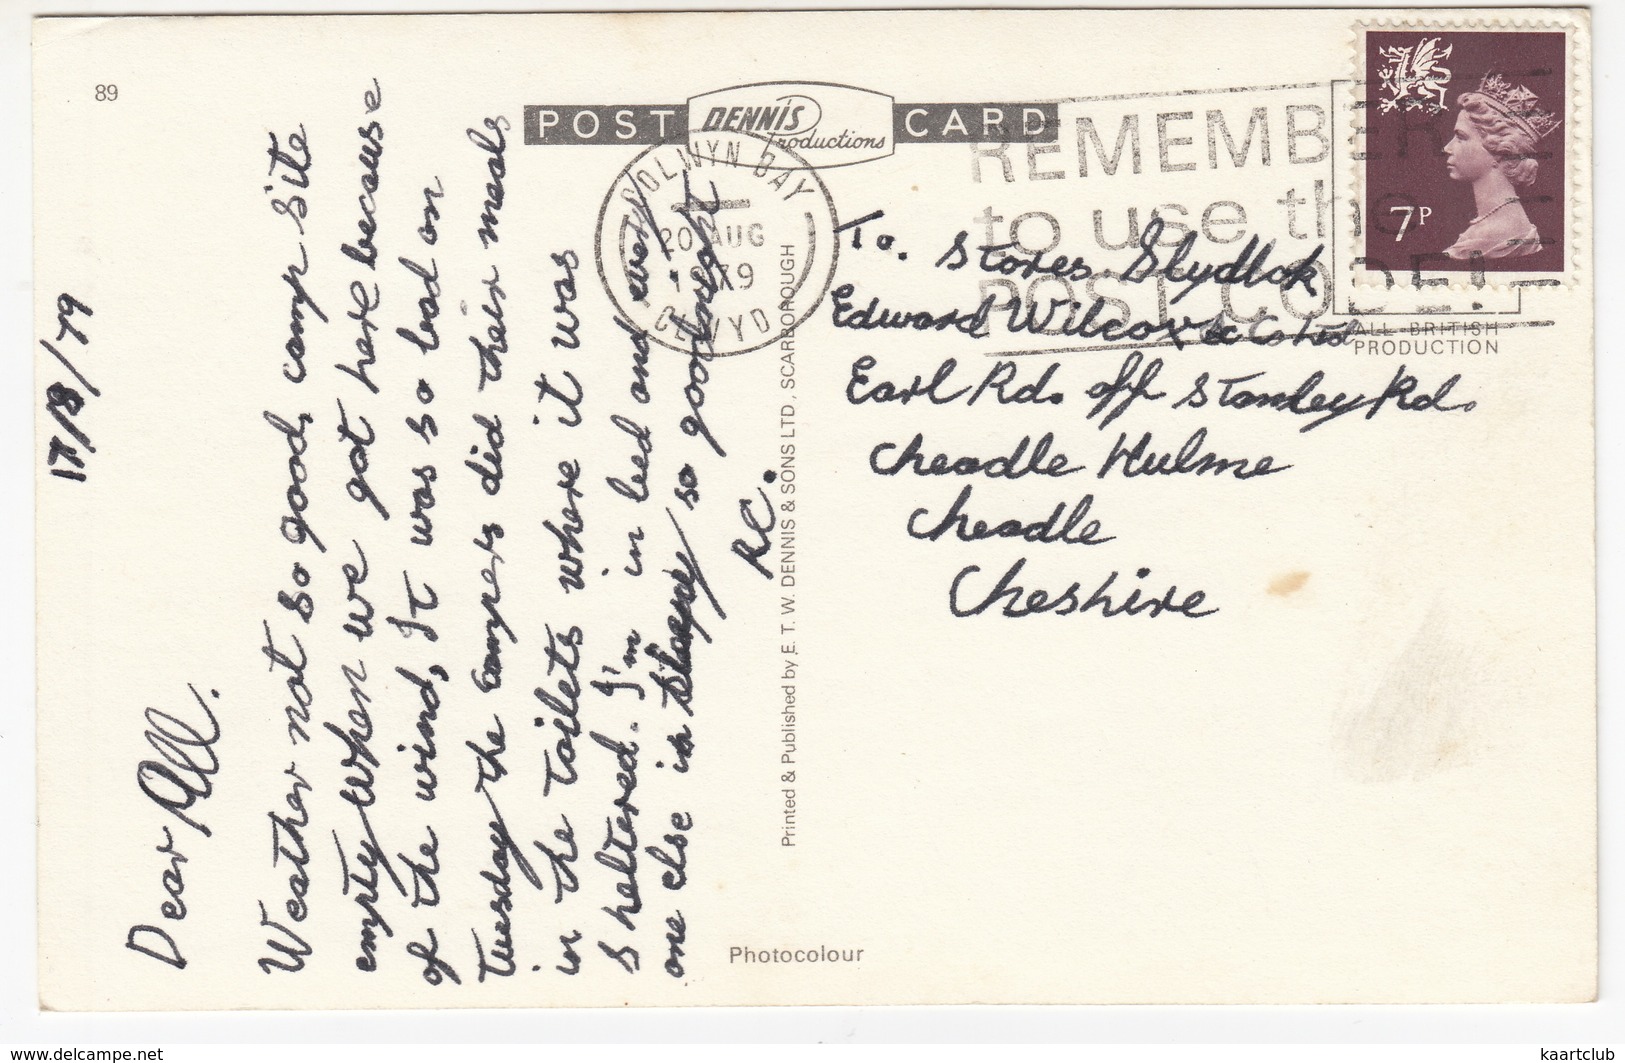 89
POST DENNIS Productions CARD
COLWYN DAY
20 AUG
CLWYD
REMEMBER
to use the
POST CODE!
7P
ALL BRITISH
PRODUCTION
17/8/79
Dear All.
Weather not so good, camp site
empty when we got here because
of the wind, It was so bad on
Tuesday the campers did their meals
in the toilets where it was
sheltered. I'm in bed and every
one else is so goodnight
R.C.
To. Stores.
Edward Wilcox & Co Ltd
Earl Rd. off Stanley Rd.
Cheadle Hulme
Cheadle
Cheshire
Printed & Published by E. T. W. DENNIS & SONS LTD., SCARBOROUGH
Photocolour
www.delcampe.net
kaartclub